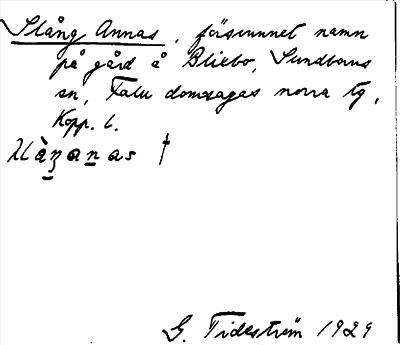 Slång Annas, försvunnet namn
på gård å Blixbo, Sundborns
sn, Falu domsagas norra tg,
Kopp. l.
anas †
G. Tideström 1929